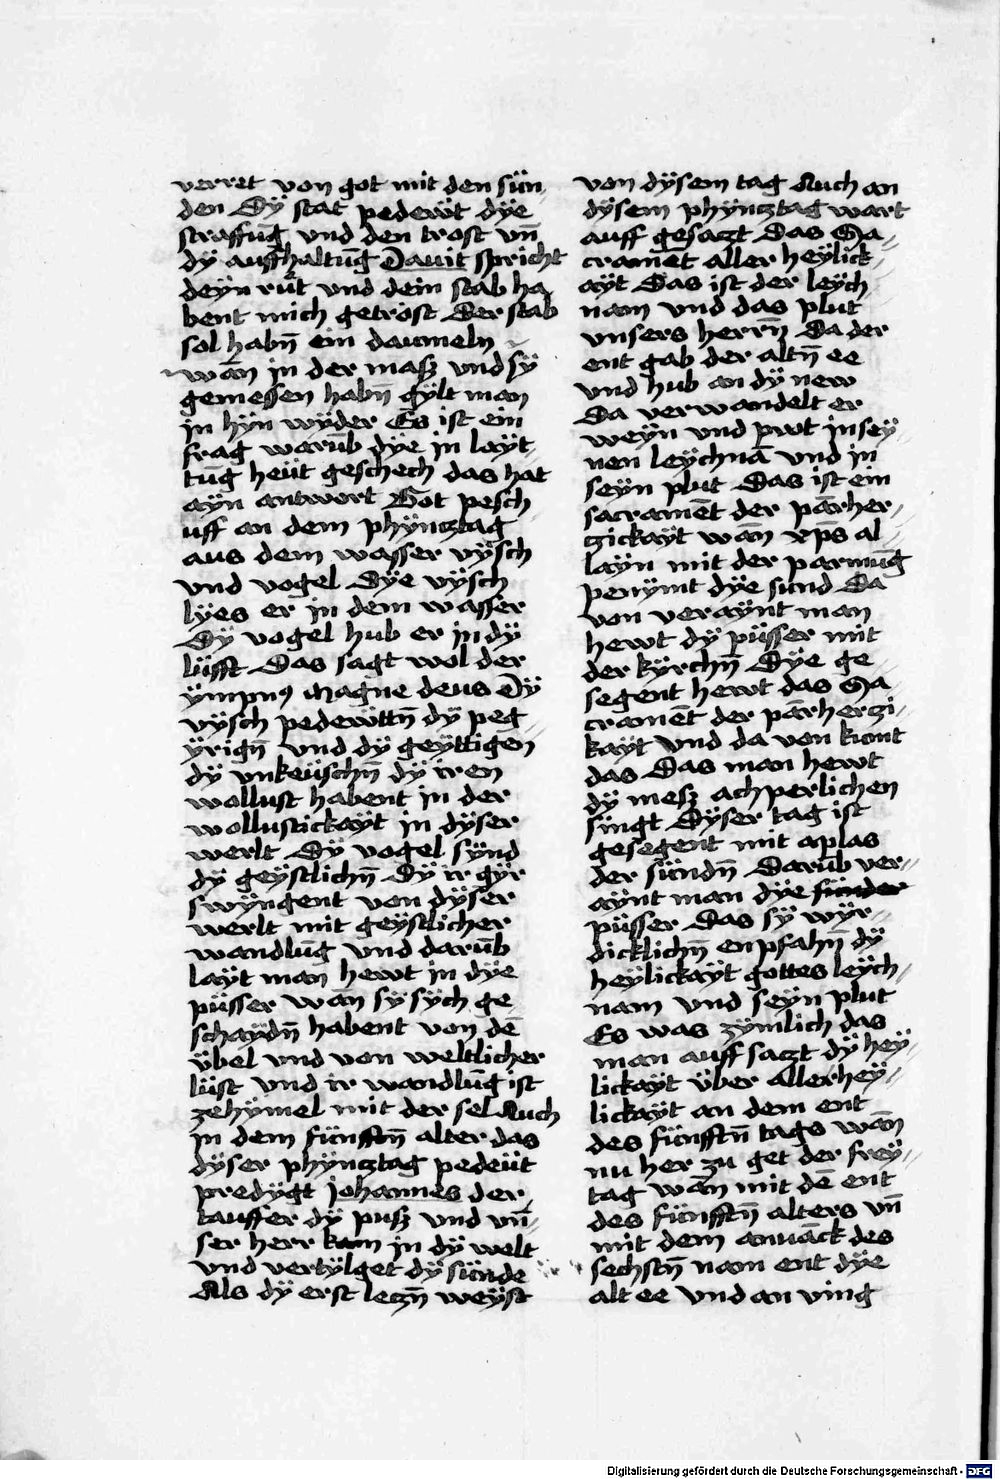 verret von got mit den sün,
den Dÿ stat pedewt dÿe
straffūg vnd den trost vn̄
dÿ auffhaltūg Dauit spricht
deÿn rut vnd dein stab ha,
bent mich getröst Der stab
sol habn̄ ein daumeln
wān in der masz vnd sÿ
gemessen habn̄ gÿlt man
in hÿn wÿder Es ist ein
frag warūb dÿe in laÿt,
tūg heüt geschech das hat
aÿn antwort Got pesch,
uff an dem phÿncztag
aus dem wasser vÿsch
vnd vogel Dÿe vÿsch
lÿes er in dem wasser
Dÿ vogel hub er in dÿ
lüfft Das sagt wol der
ÿmpnꝰ Magne deus Dÿ
vÿsch pedewttn̄ dÿ peg,
ÿrign̄ vnd dÿ geÿttigen
dÿ vnkeüschn̄ dÿ iren
wollust habent in der
wollustickaÿt in dÿser
werlt Dÿ vogel sÿnd
dÿ geÿstlichn̄ Dÿ ir gÿr
swÿngent von dÿser
werlt mit geÿstlicher
wandlūg vnd darūb
laÿt man hewt in dÿe
püsser wān sÿ sÿch ge,
schaÿdn̄ habent von dē
übel vnd von weltlicher
lüst vnd ir wandlūg ist
ze hÿmel mit der sel Auch
in dem fünfftn̄ alter das
dÿser phÿncztag pedeüt
predÿgt johannes der,
tauffer dÿ pusz vnd vn̄,
ser herr kam in dÿ welt
vnd vertÿlget dÿ sünde
Als dÿ erst leczn̄ weÿst
von dÿsem tag Auch an
dÿsem phÿncztag wart
auff gesaczt Das Sa,
cramēt aller heÿlick,
aÿt Das ist der leÿch,
nam vnd das plut
vnsers herrn̄ Da der
ent gab der altn̄ ee
vnd hub an dÿ new
Da verwandelt er
weÿn vnd prot in seÿ,
nen leÿchnā vnd in
seÿn plut Das ist ein
sacramēt der pārher,
czickaÿt wān xp̄s al,
laÿn mit der parmūg
penÿmt dÿe sund Da
von veraÿnt man
hewt dÿ püsser mit
der kÿrchn̄ Dÿe ge,
segent hewt das Sa,
cramēt der pārherczi,
kaÿt vnd da von kumt
das Das man hewt
dÿ mesz achperlichen
singt Dÿser tag ist
gesegent mit aplas
der sündn̄ Darūb ver,
aÿnt man dÿe sünder
püsser Das sÿ wÿr,
dicklichn̄ enpfahn̄ dÿ
heÿlickaÿt gottes leÿch,
nam vnd seÿn plut
Es was zÿmlich das
man auff saczt dÿ heÿ,
lickaÿt über aller heÿ,
lickaÿt an dem ent
des fünfftn̄ tags wān
nu her zu get der freÿ,
tag wān mit dē ent
des fünfftn̄ alters vn̄
mit dem anuāck des
sechstn̄ nam ent dÿe
alt ee vnd an ving
Digitalisierung gefördert durch die Deutsche Forschungsgemeinschaft - DFG